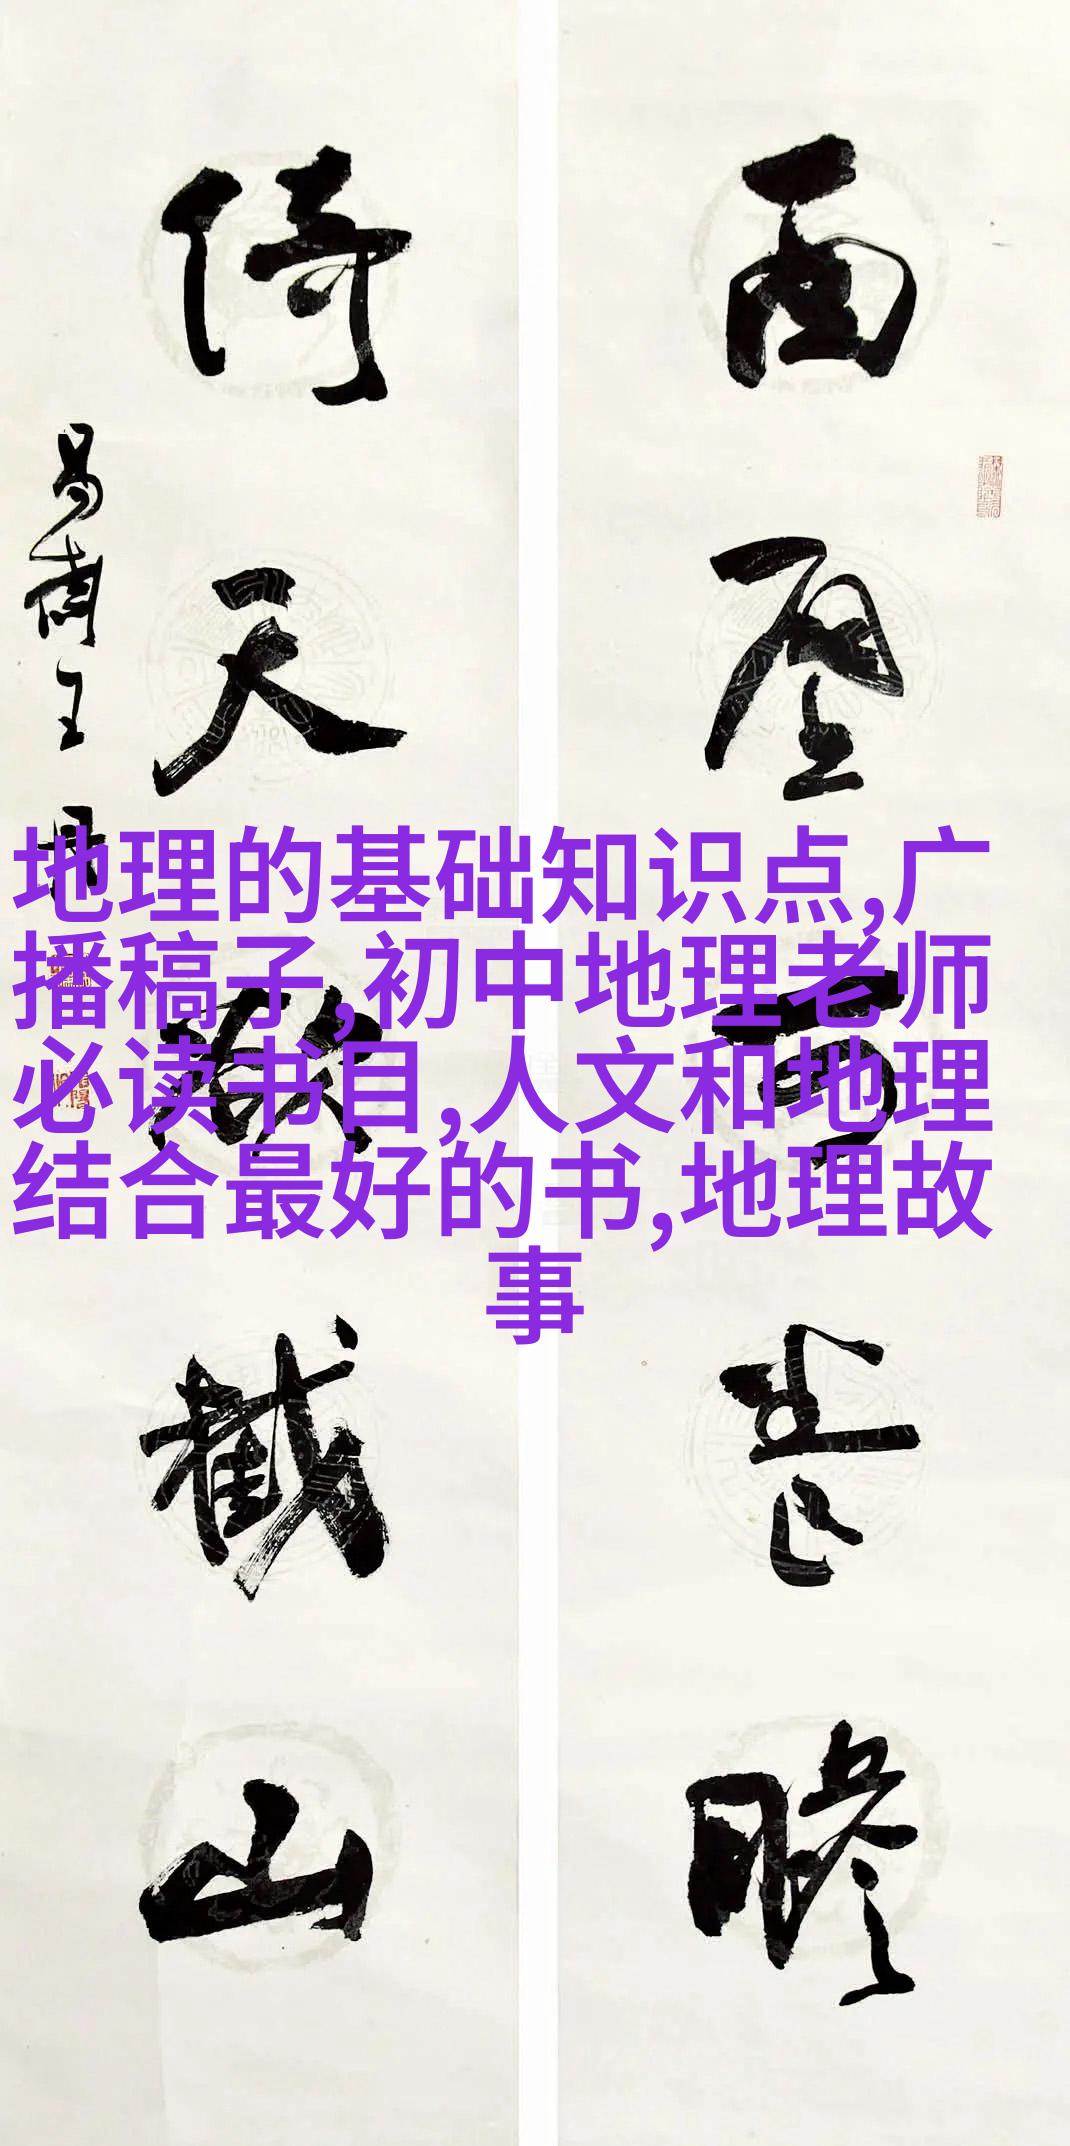 西壁瞻
倚天截山
地理的基础知识点,广
播稿子,初中地理老师
必读书目,人文和地理
结合最好的书,地理故
事